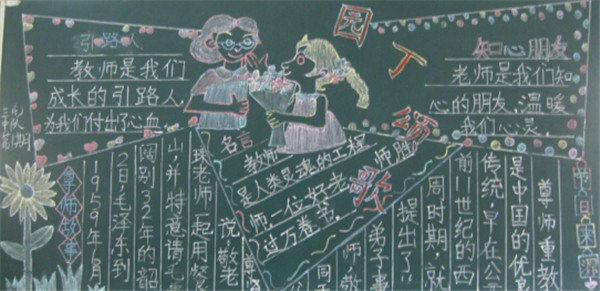 园丁颂歌
引路人
教师是我们
成长的引路人,
为我们付出了心血
知心朋友
老师是我们知
心的朋友,温暖
我们心灵.
名言
教师
是人类灵魂的工程
师,一位好老师胜
过万卷书。
节日来源
尊师重教
是中国的优
传统,早在公
前11世纪的西
周时期,就
提出了
弟子事
师,敬
尊师故事
1959年6月
2日,毛泽东到
阔别32年的韶
山,并特意请毛
珠老师一起用餐
说:敬老